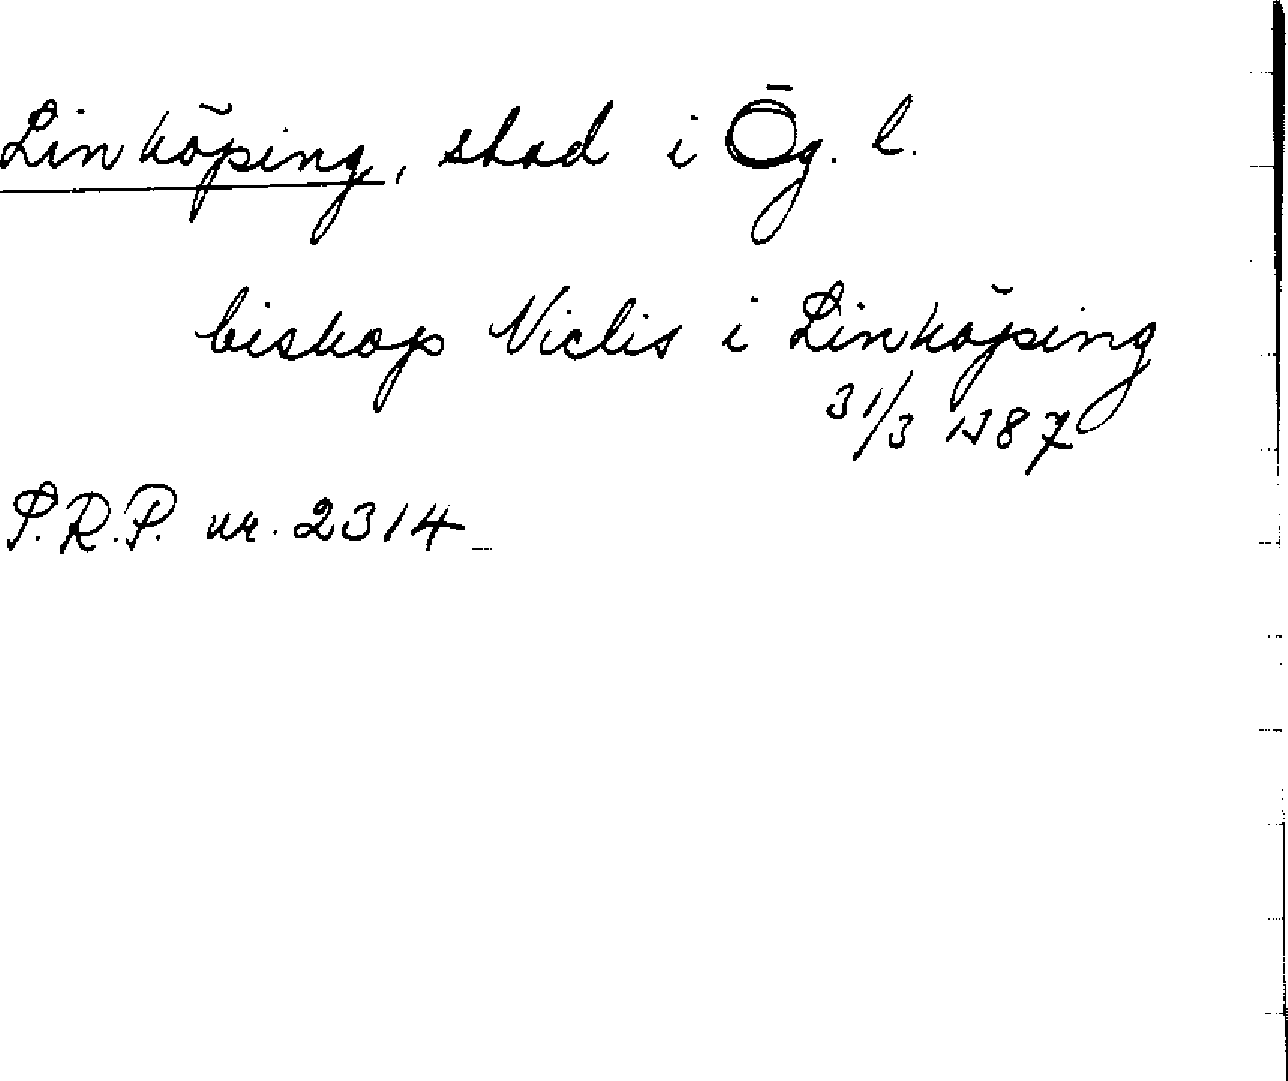 Linköping, stad i Ög. l.
biskop Niclis i Linköping
31/3 1387
P.R.P. nr. 2314